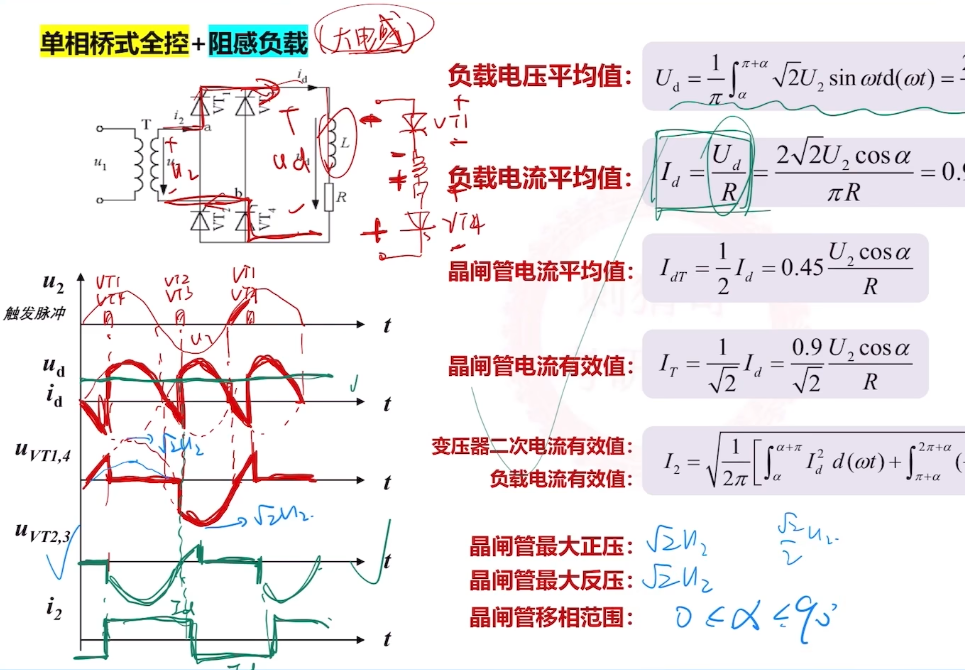 单相桥式全控+阻感负载 (大电感)
负载电压平均值: U_d = \frac{1}{\pi}\int_{\alpha}^{\pi+\alpha} \sqrt{2}U_2 \sin\omega t d(\omega t) =
负载电流平均值: I_d = \frac{U_d}{R} = \frac{2\sqrt{2}U_2\cos\alpha}{\pi R} = 0.9
晶闸管电流平均值: I_{dT} = \frac{1}{2}I_d = 0.45\frac{U_2\cos\alpha}{R}
晶闸管电流有效值: I_T = \frac{1}{\sqrt{2}}I_d = \frac{0.9}{\sqrt{2}}\frac{U_2\cos\alpha}{R}
变压器二次电流有效值:
负载电流有效值:
I_2 = \sqrt{\frac{1}{2\pi}[\int_{\alpha}^{\alpha+\pi} I_d^2 d(\omega t) + \int_{\pi+\alpha}^{2\pi+\alpha} (-
晶闸管最大正压: √2U₂ \frac{\sqrt{2}}{2}U₂
晶闸管最大反压: √2U₂
晶闸管移相范围: 0≤α≤90°
T i₂ a i_d
u₁ u₂ u_d L
b R
VT1
VT4
u₂ VT1 VT4 VT2 VT3 VT1 U₂
触发脉冲 t
u_d
i_d t
u_{VT1,4} √2U₂ t
√2U₂
u_{VT2,3} t
i₂ Id t
Id